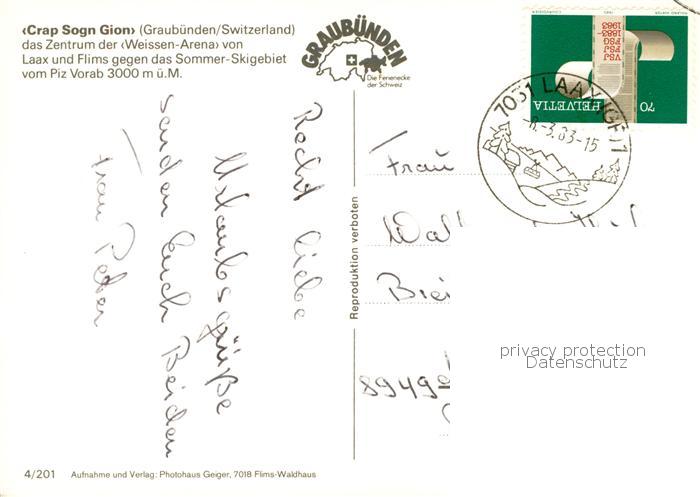 ‹Crap Sogn Gion› (Graubünden/Switzerland)
das Zentrum der ‹Weissen-Arena› von
Laax und Flims gegen das Sommer-Skigebiet
vom Piz Vorab 3000 m ü.M.
GRAUBÜNDEN
Die Ferienecke
der Schweiz
Recht liebe
Urlaubsgrüße
senden Euch Beiden
Frau Peter
Reproduktion verboten
Frau
8949
VSJ
FSJ
FSG
1883-
1983
HELVETIA
70
7031 LAAX (GR) 1
-8.-3.83-15
privacy protection
Datenschutz
4/201 Aufnahme und Verlag: Photohaus Geiger, 7018 Flims-Waldhaus